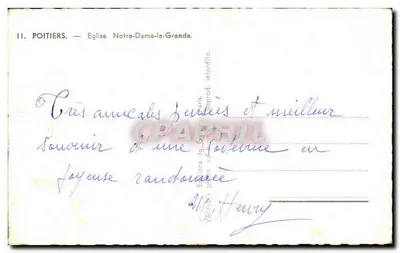 11. POITIERS. — Eglise Notre-Dame-la-Grande.
Très amicales pensées et meilleur
souvenir et une en
joyeuse randonnée
M. Henry
CPARAMA